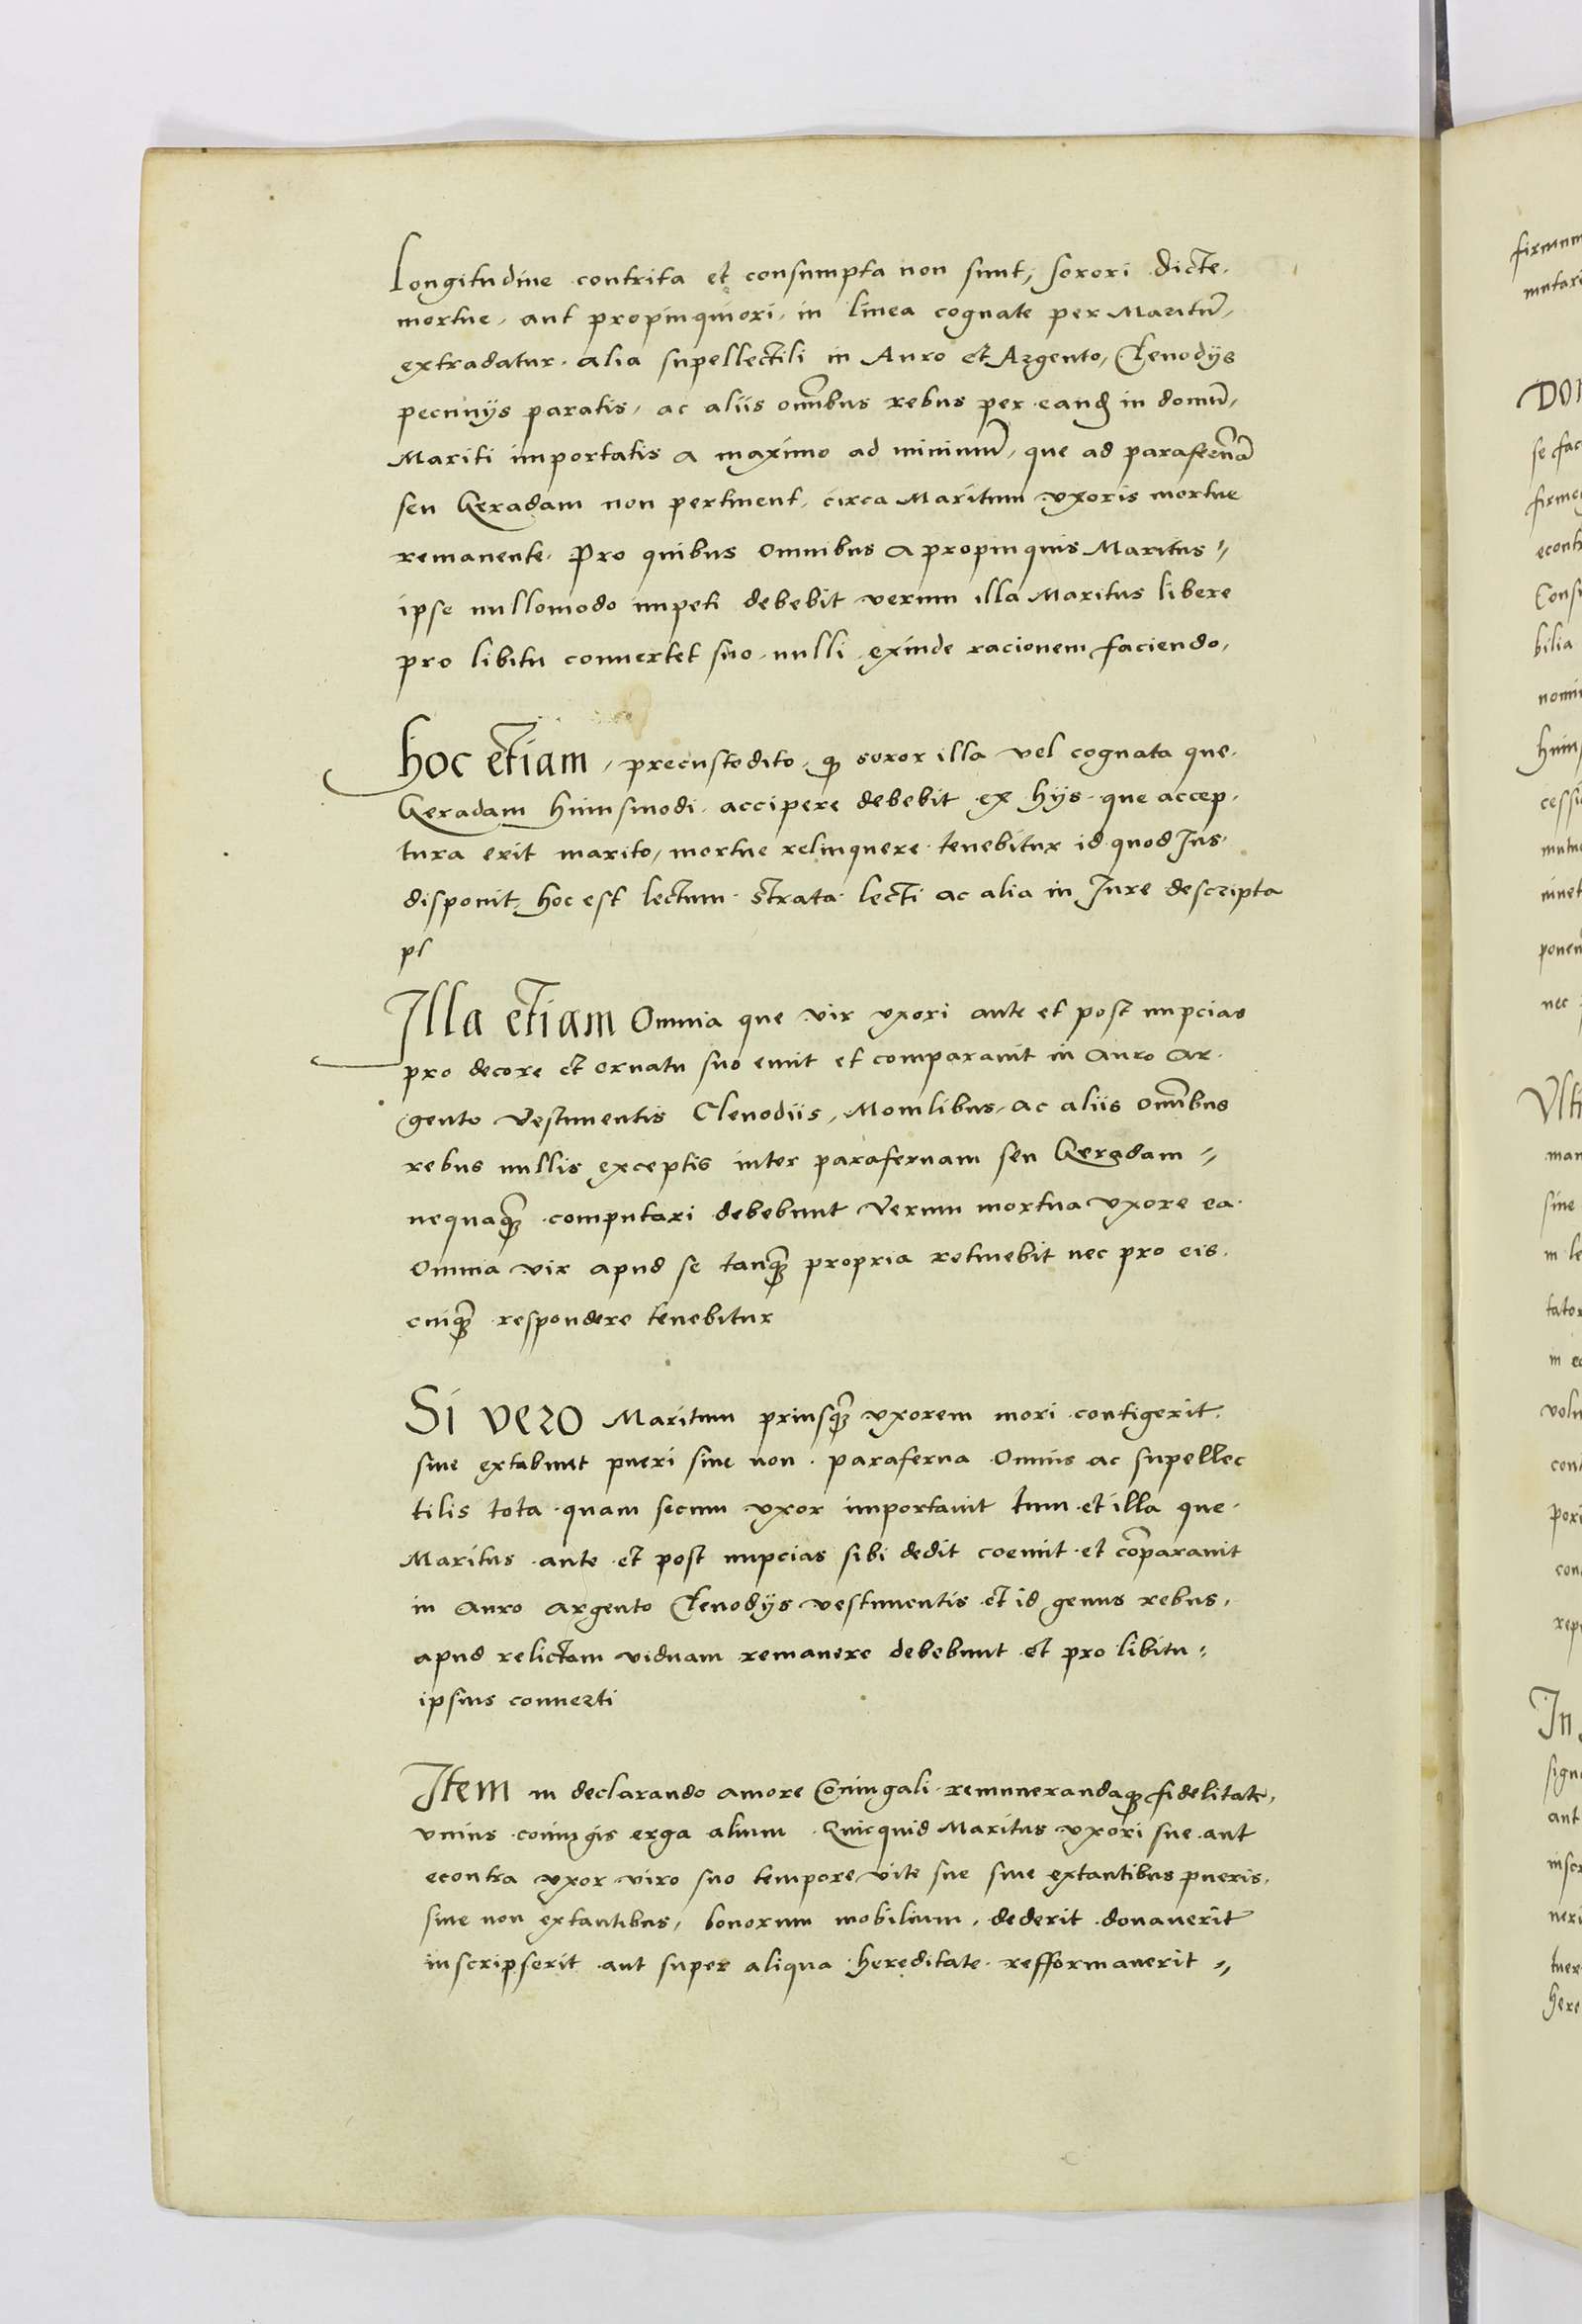 Longitudine contrita et consumpta non sunt, sorori dicte.
mortue, aut propinquiori, in linea cognate per Maritũ,
extradatur. alia supellectili in Auro et Argento, Clenodÿs
pecunÿs paratis, ac aliis om̃ibus rebus per eand̃ in domũ,
Mariti importatis a maximo ad minimũ, que ad parafern̄ã
seu Geradam non pertinent, circa Maritum vxoris mortue
remanente. Pro quibus Omnibus a propinquis Maritus "
ipse nullomodo impeti debebit verum illa Maritus libere
pro libitu conuertet suo, nulli exinde racionem faciendo,
Hoc etiam, precustodito, ꝙ soror illa vel cognata que.
Geradam huiusmodi. accipere debebit ex hÿs que accep,
tura erit marito, mortue relinquere tenebitur id quod Jus.
disponit, hoc est lectum strata lecti ac alia in Jure descripta
pl
Illa etiam Omnia que vir vxori ante et post nupcias
pro decore et ornatu suo emit et comparauit in Auro Ar.
gento Vestimentis Clenodiis, Monilibus, ac aliis om̃ibus
rebus nullis exceptis inter parafernam seu Geradam "
nequaq̃ computari debebunt Verum mortua vxore ea.
Omnia vir apud se tanq̃ propria retinebit nec pro eis.
cuiq̃ respondere tenebitur
Si vero Maritum priusq̃ vxorem mori contigerit.
siue extabunt pueri siue non. paraferna Omnis ac supellec
tilis tota quam secum vxor importauit tum et illa que.
Maritus ante et post nupcias sibi dedit coemit et cõparauit
in Auro Argento Clenodÿs vestimentis et id genus rebus,
apud relictam viduam remanere debebunt et pro libitu "
ipsius conuerti
Item in declarando amore Coniugali remunerandaꝙ fidelitate,
vnius coniugis erga alium Quicquid Maritus vxori sue aut
econtra vxor viro suo tempore vite sue siue extantibus pueris,
siue non extantibus, bonorum mobilium, dederit donauerit
inscripserit aut super aliqua hereditate refformauerit "